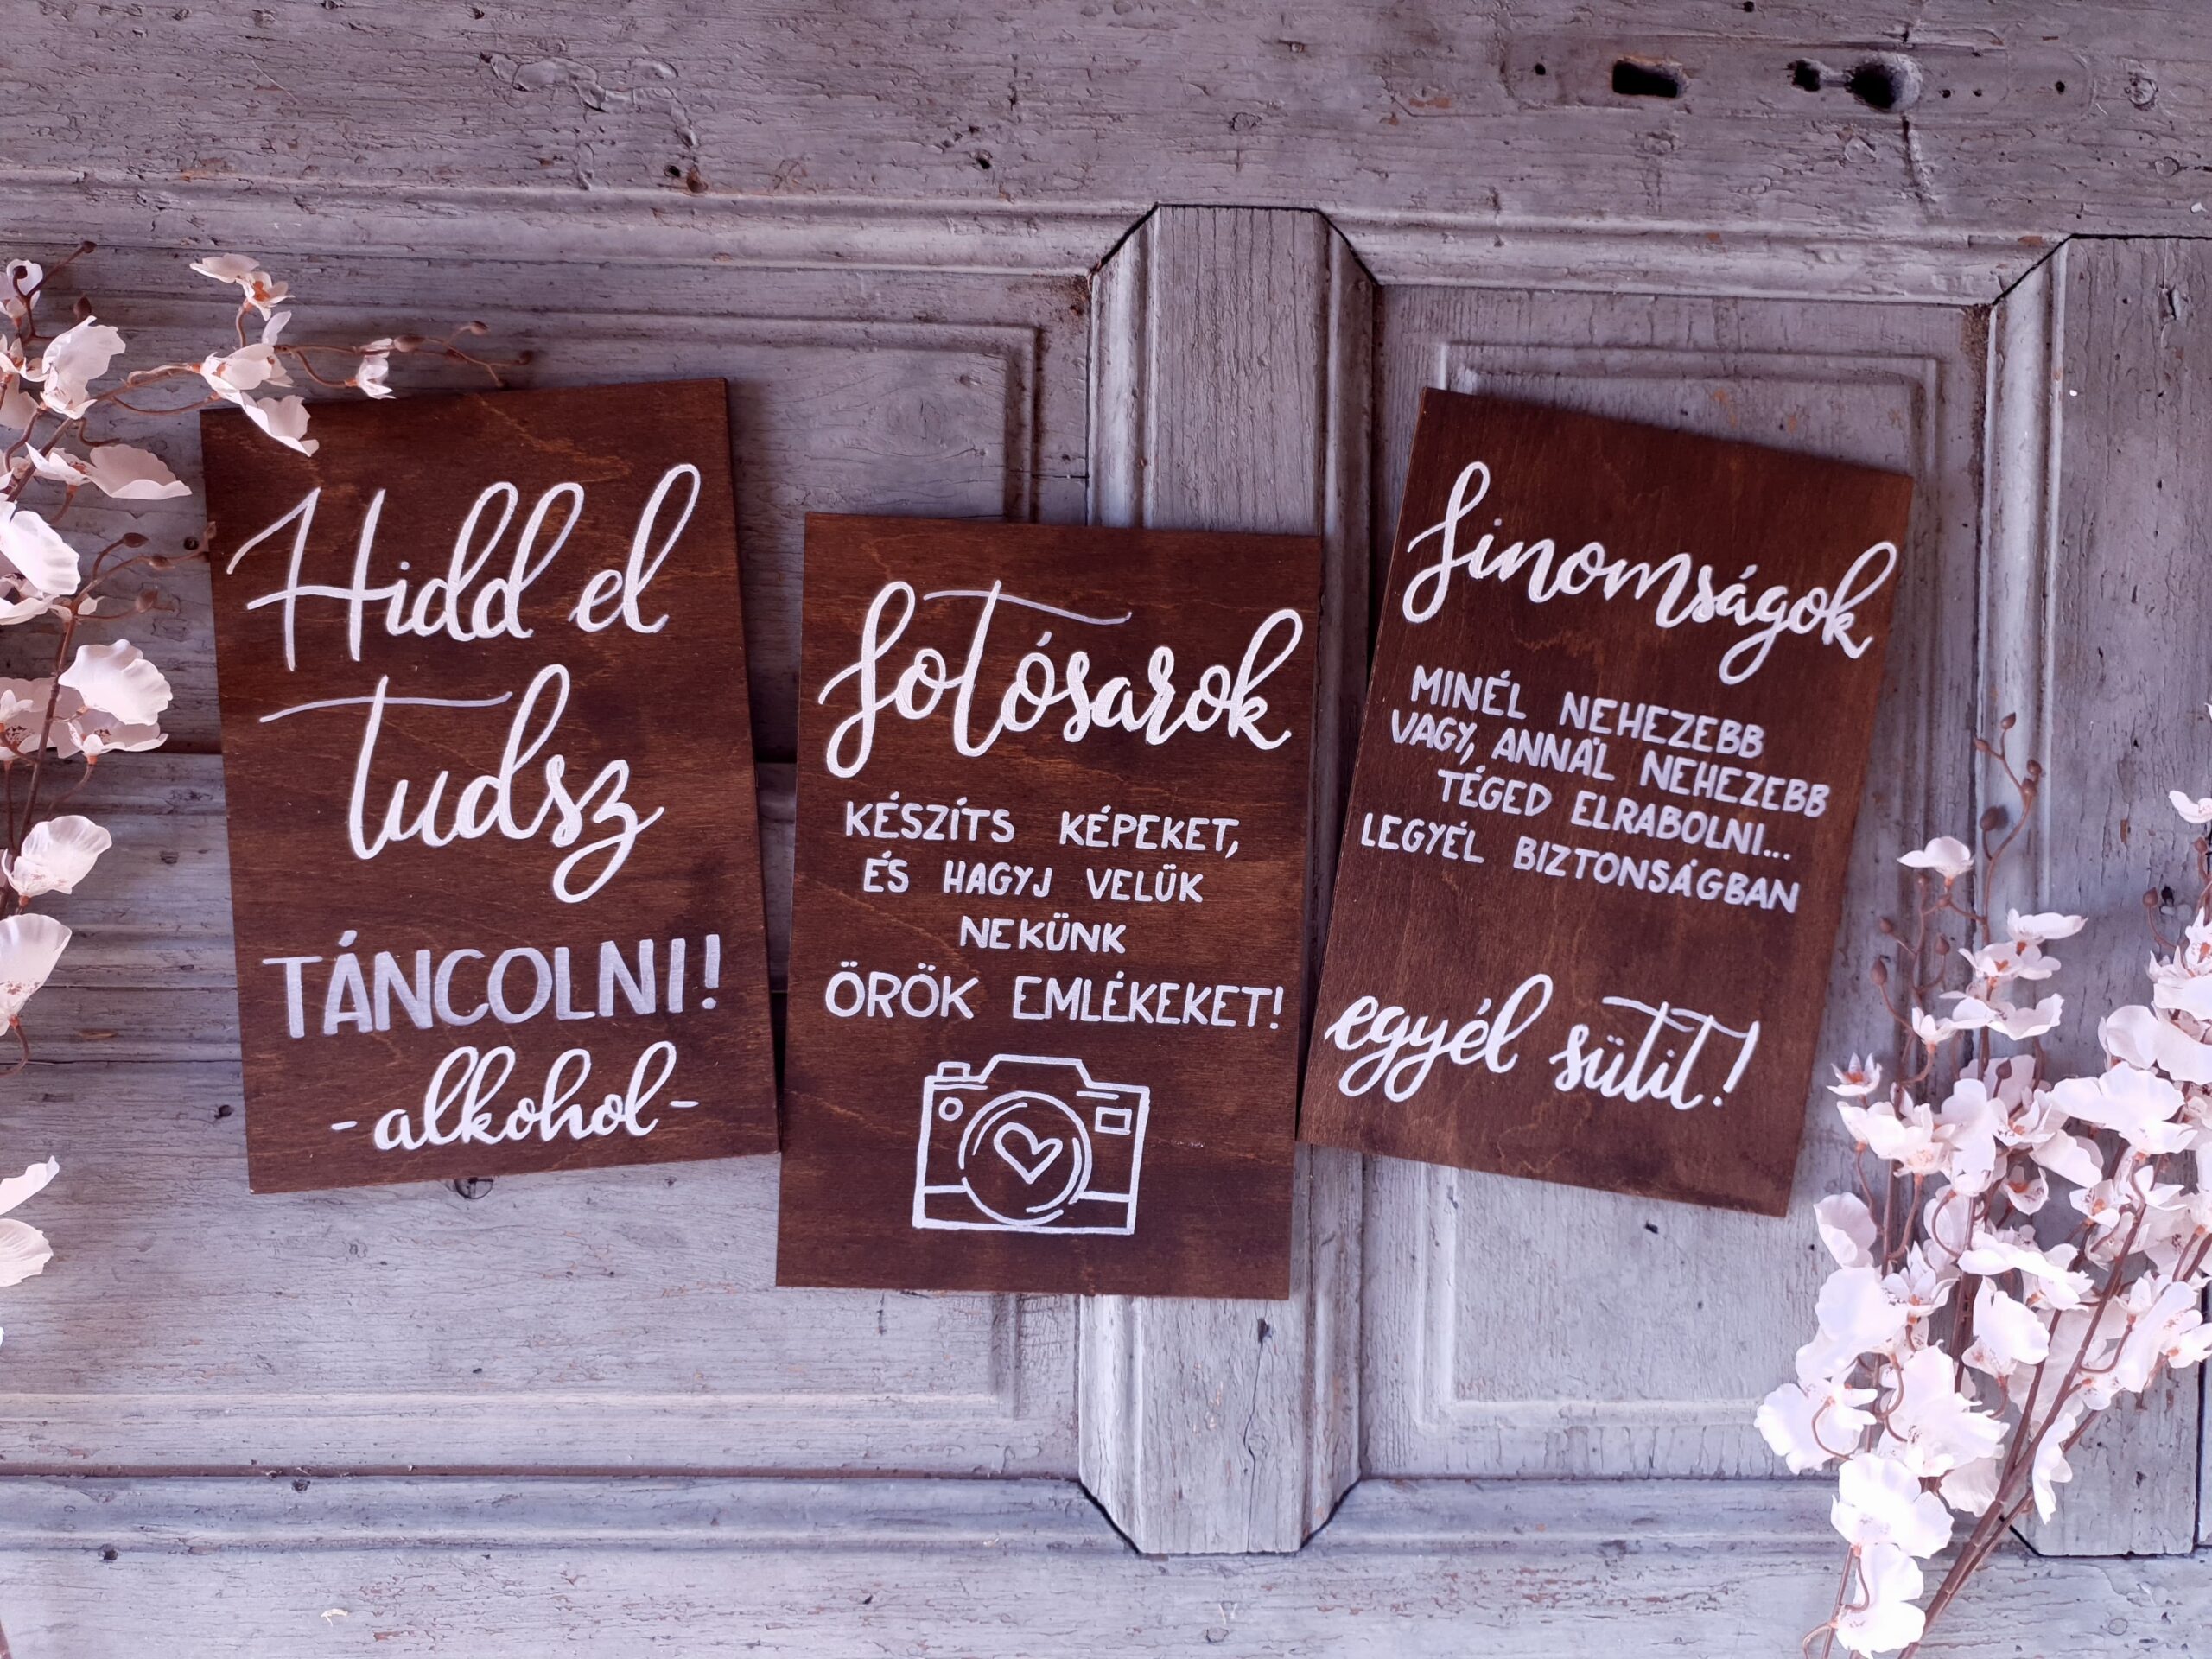 Hidd el
Tudsz
TÁNCOLNI!
-alkohol-
fotósarok
KÉSZÍTS KÉPEKET,
ÉS HAGYJ VELÜK
NEKÜNK
ÖRÖK EMLÉKEKET!
finomságok
MINÉL NEHEZEBB
VAGY, ANNÁL NEHEZEBB
TÉGED ELRABOLNI...
LEGYÉL BIZTONSÁGBAN
egyél sütit!